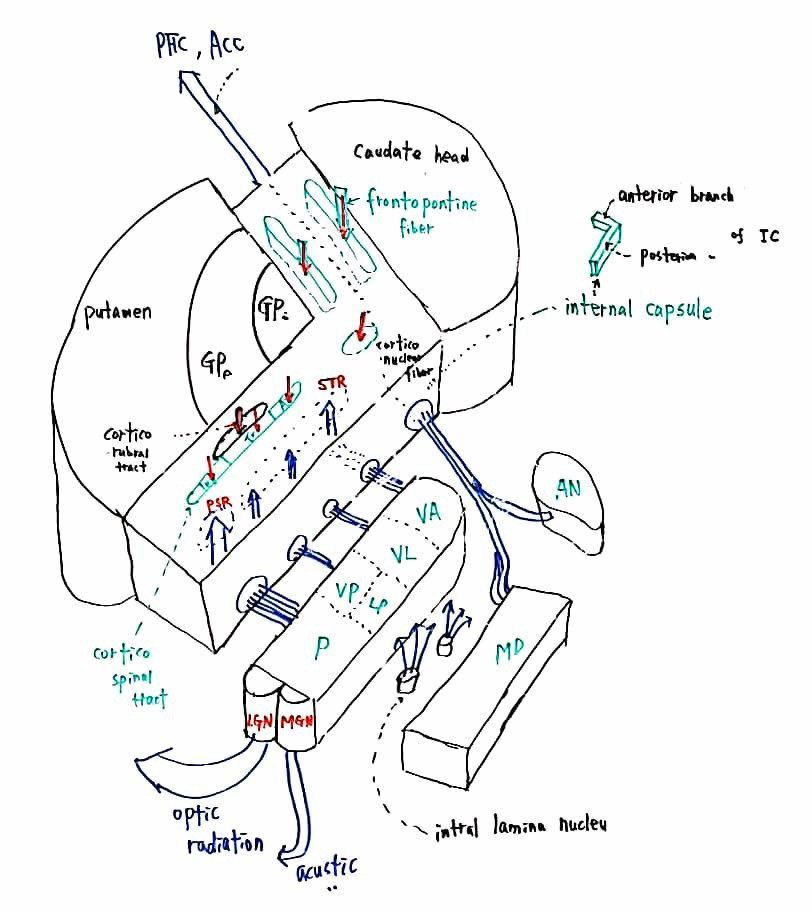 PHC, ACC
caudate head
frontopontine
fiber
anterior branch
of IC
internal capsule
putamen
GPi
GPe
cortico
nuclear
fiber
STR
cortico
rubral
tract
PSR
AN
VA
VL
VP
LP
P
MD
cortico
spinal
tract
LGN
MGN
optic
radiation
acustic
intral lamina nucleu